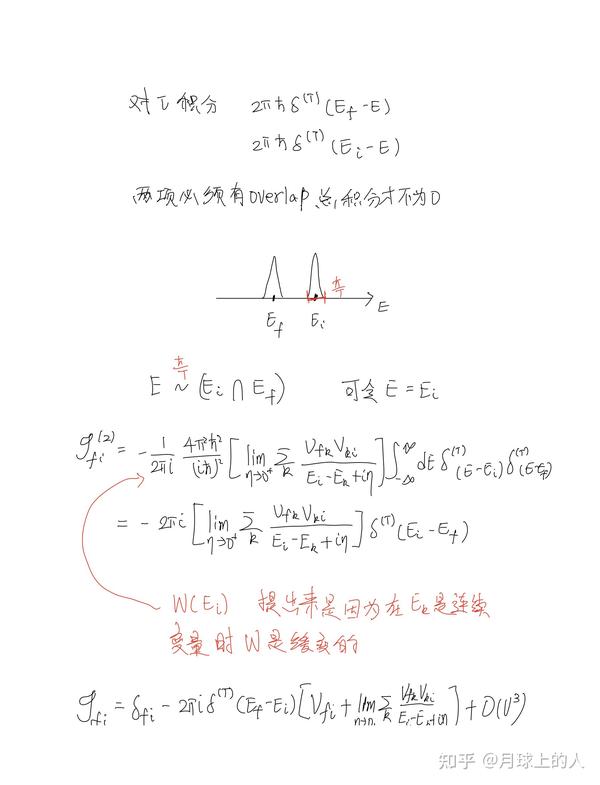 对τ积分 2πħδ^(T)(E_f-E)
2πħδ^(T)(E_i-E)
两项必须有overlap总积分才不为0
ħ/T
E_f E_i E
E ~^{ħ/T} (E_i ∩ E_f) 可令 E = E_i
𝒮_fi^(2) = -\frac{1}{2πi} \frac{4π²ħ²}{(iħ)²} [lim_{η→0⁺} Σ_k \frac{V_fk V_ki}{E_i-E_k+iη}] ∫_{-∞}^{∞} dE δ^(T)(E-E_i) δ^(T)(E-E_f)
= -2πi [lim_{η→0⁺} Σ_k \frac{V_fk V_ki}{E_i-E_k+iη}] δ^(T)(E_i-E_f)
W(E_i) 提出来是因为在E_k是连续
变量时W是缓变的
𝒮_fi = δ_fi - 2πiδ^(T)(E_f-E_i) [V_fi + lim Σ_k \frac{V_fk V_ki}{E_i-E_k+iη}] + O(V³)
知乎 @月球上的人